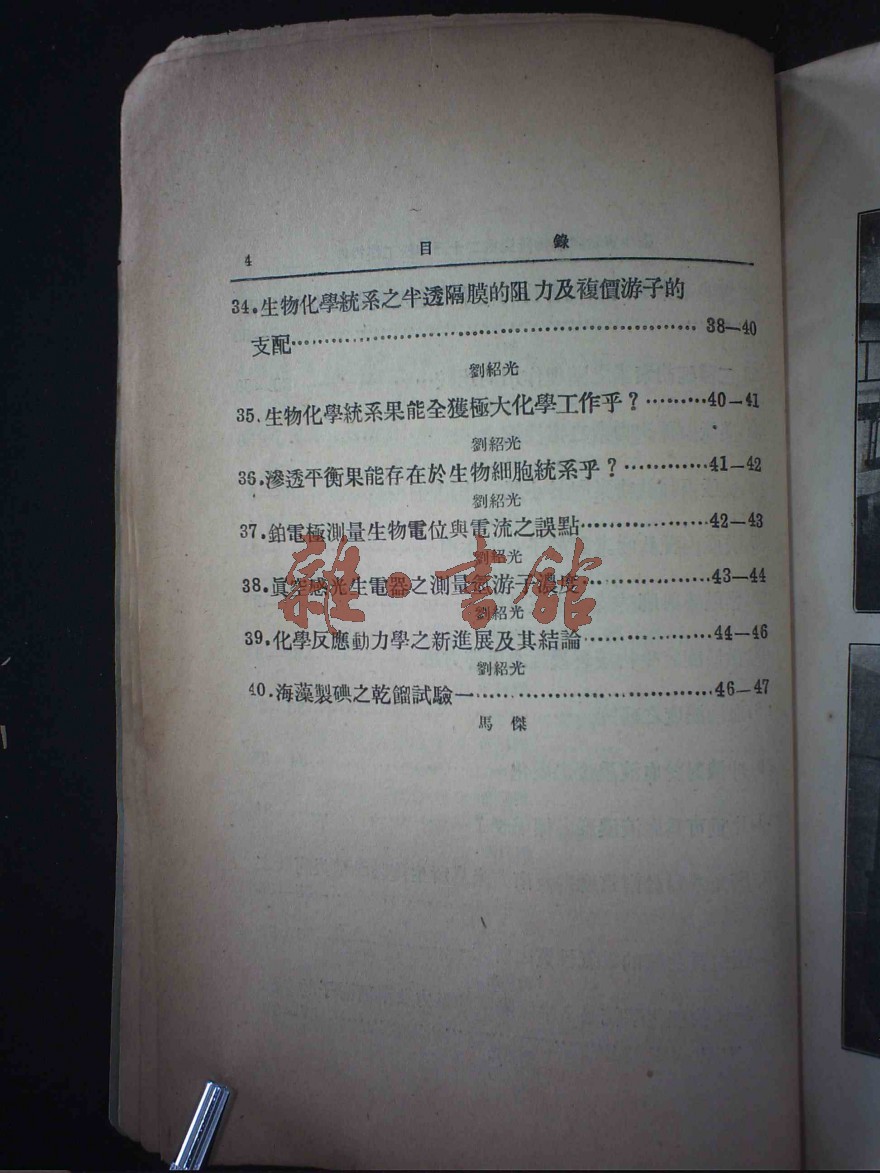 4 目 錄
34.生物化學統系之半透隔膜的阻力及複價游子的
支配⋯⋯⋯⋯⋯⋯⋯⋯⋯⋯⋯⋯⋯⋯ 38—40
劉紹光
35.生物化學統系果能全獲極大化學工作乎?⋯⋯⋯40—41
劉紹光
36.滲透平衡果能存在於生物細胞統系乎?⋯⋯⋯⋯41—42
劉紹光
37.鉑電極測量生物電位與電流之誤點⋯⋯⋯⋯⋯42—43
劉紹光
38.眞空感光生電器之測量氫游子濃度⋯⋯⋯⋯⋯43—44
劉紹光
39.化學反應動力學之新進展及其結論⋯⋯⋯⋯⋯44—46
劉紹光
40.海藻製碘之乾餾試驗一⋯⋯⋯⋯⋯⋯⋯⋯⋯46—47
馬 傑
雜·書館